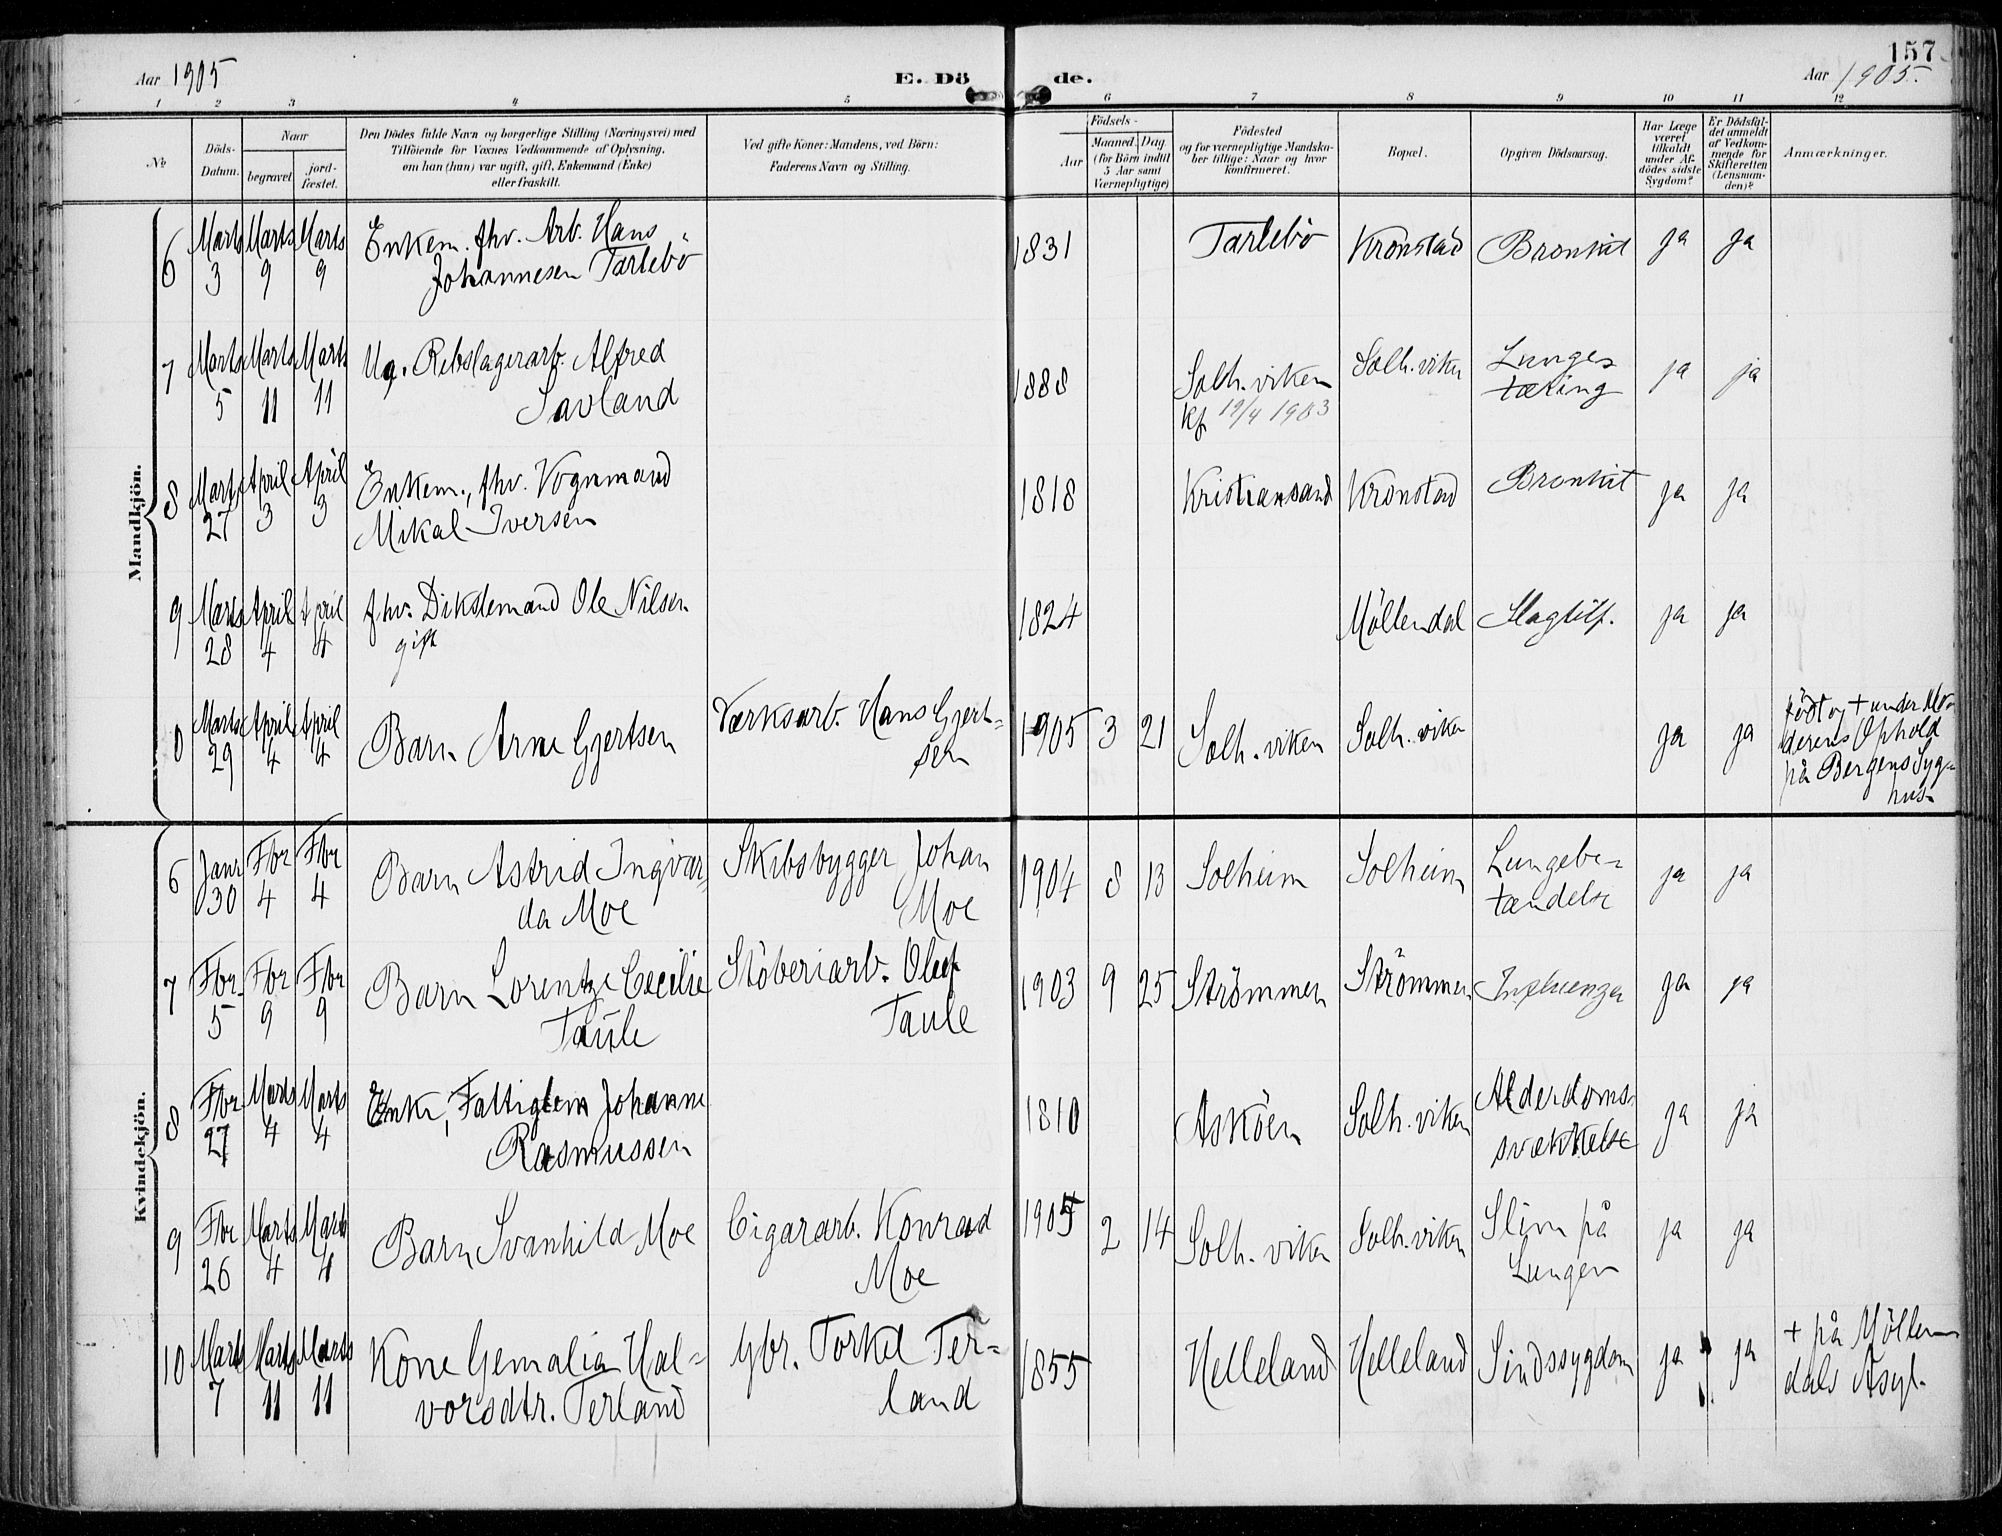 157
Aar 1905 E. Dö de. Aar 1905.
1 2 3 4 5 6 7 8 9 10 11 12
No
Döds-
Datum.
Naar
begravet
jord-
fæstet.
Den Dödes fulde Navn og borgerlige Stilling (Næringsvei) med
Tilföiende for Voxnes Vedkommende af Oplysning,
om han (hun) var ugift, gift, Enkemand (Enke)
eller fraskilt.
Ved gifte Koner: Mandens, ved Börn:
Faderens Navn og Stilling.
Födsels-
Aar
Maaned. Dag.
(for Börn indtil
5 Aar samt
Værnepligtige)
Födested
og for værnepligtige Mandska-
ber tillige: Naar og hvor
konfirmeret.
Bopæl.
Opgiven Dödsaarsag.
Har Læge
været
tilkaldt
under Af-
dödes sidste
Sygdom?
Er Dödsfal-
det anmeldt
af Vedkom-
mende for
Skifteretten
(Lensman-
den)?
Anmærkninger.
Mandkjön.
6 Marts Marts Marts Enkem. fhv. Arb. Hans 1831 Tarlebö Kronstad Bronkit ja ja
3 9 9 Johannesen Tarlebö
7 Marts Marts Marts Ug. Rebslagerarb. Alfred 1888 Solh. viken Solh. viken Lunge= ja ja
5 11 11 Savland kf. 19/4 1903 tæring
8 Marts April April Enkem., fhv. Vognmand 1818 Kristiansand Kronstad Bronkit ja ja
27 3 3 Mikal Iversen
9 Marts April April fhv. Dikslemand Ole Nilsen 1824 Möllendal Slagtilf. ja ja
28 4 4 gift
0 Marts April April Barn Arne Gjertsen Værksarb. Hans Gjert= 1905 3 21 Solh. viken Solh. viken ja ja födt og + under Mo-
29 4 4 sen derens Ophold
på Bergens Syg=
hus.
Kvindekjön.
6 Janr Fbr Fbr Barn Astrid Ingvar= Skibsbygger Johan 1904 8 13 Solheim Solheim Lungebe= ja ja
30 4 4 da Moe Moe tændelse
7 Fbr. Fbr Fbr Barn Lorentze Cecilie Stöberiarb. Oluf 1903 9 25 Strömmen Strömmen Influenza ja ja
5 9 9 Taule Taule
8 Fbr Marts Marts Enke, Fattiglem Johanne 1810 Asköen Solh. viken Alderdoms- ja ja
27 4 4 Rasmussen svækkelse
9 Fbr Marts Marts Barn Svanhild Moe Cigararb. Konrad 1905 2 14 Solh. viken Solh. viken Slim på ja ja
26 4 4 Moe Lungen
10 Marts Marts Marts Kone Gemalia Hal= Gbr. Torkel Ter= 1855 Helleland Helleland Sindssygdom ja ja + på Möllen
7 11 11 vorsdtr. Terland land dals Asyl.